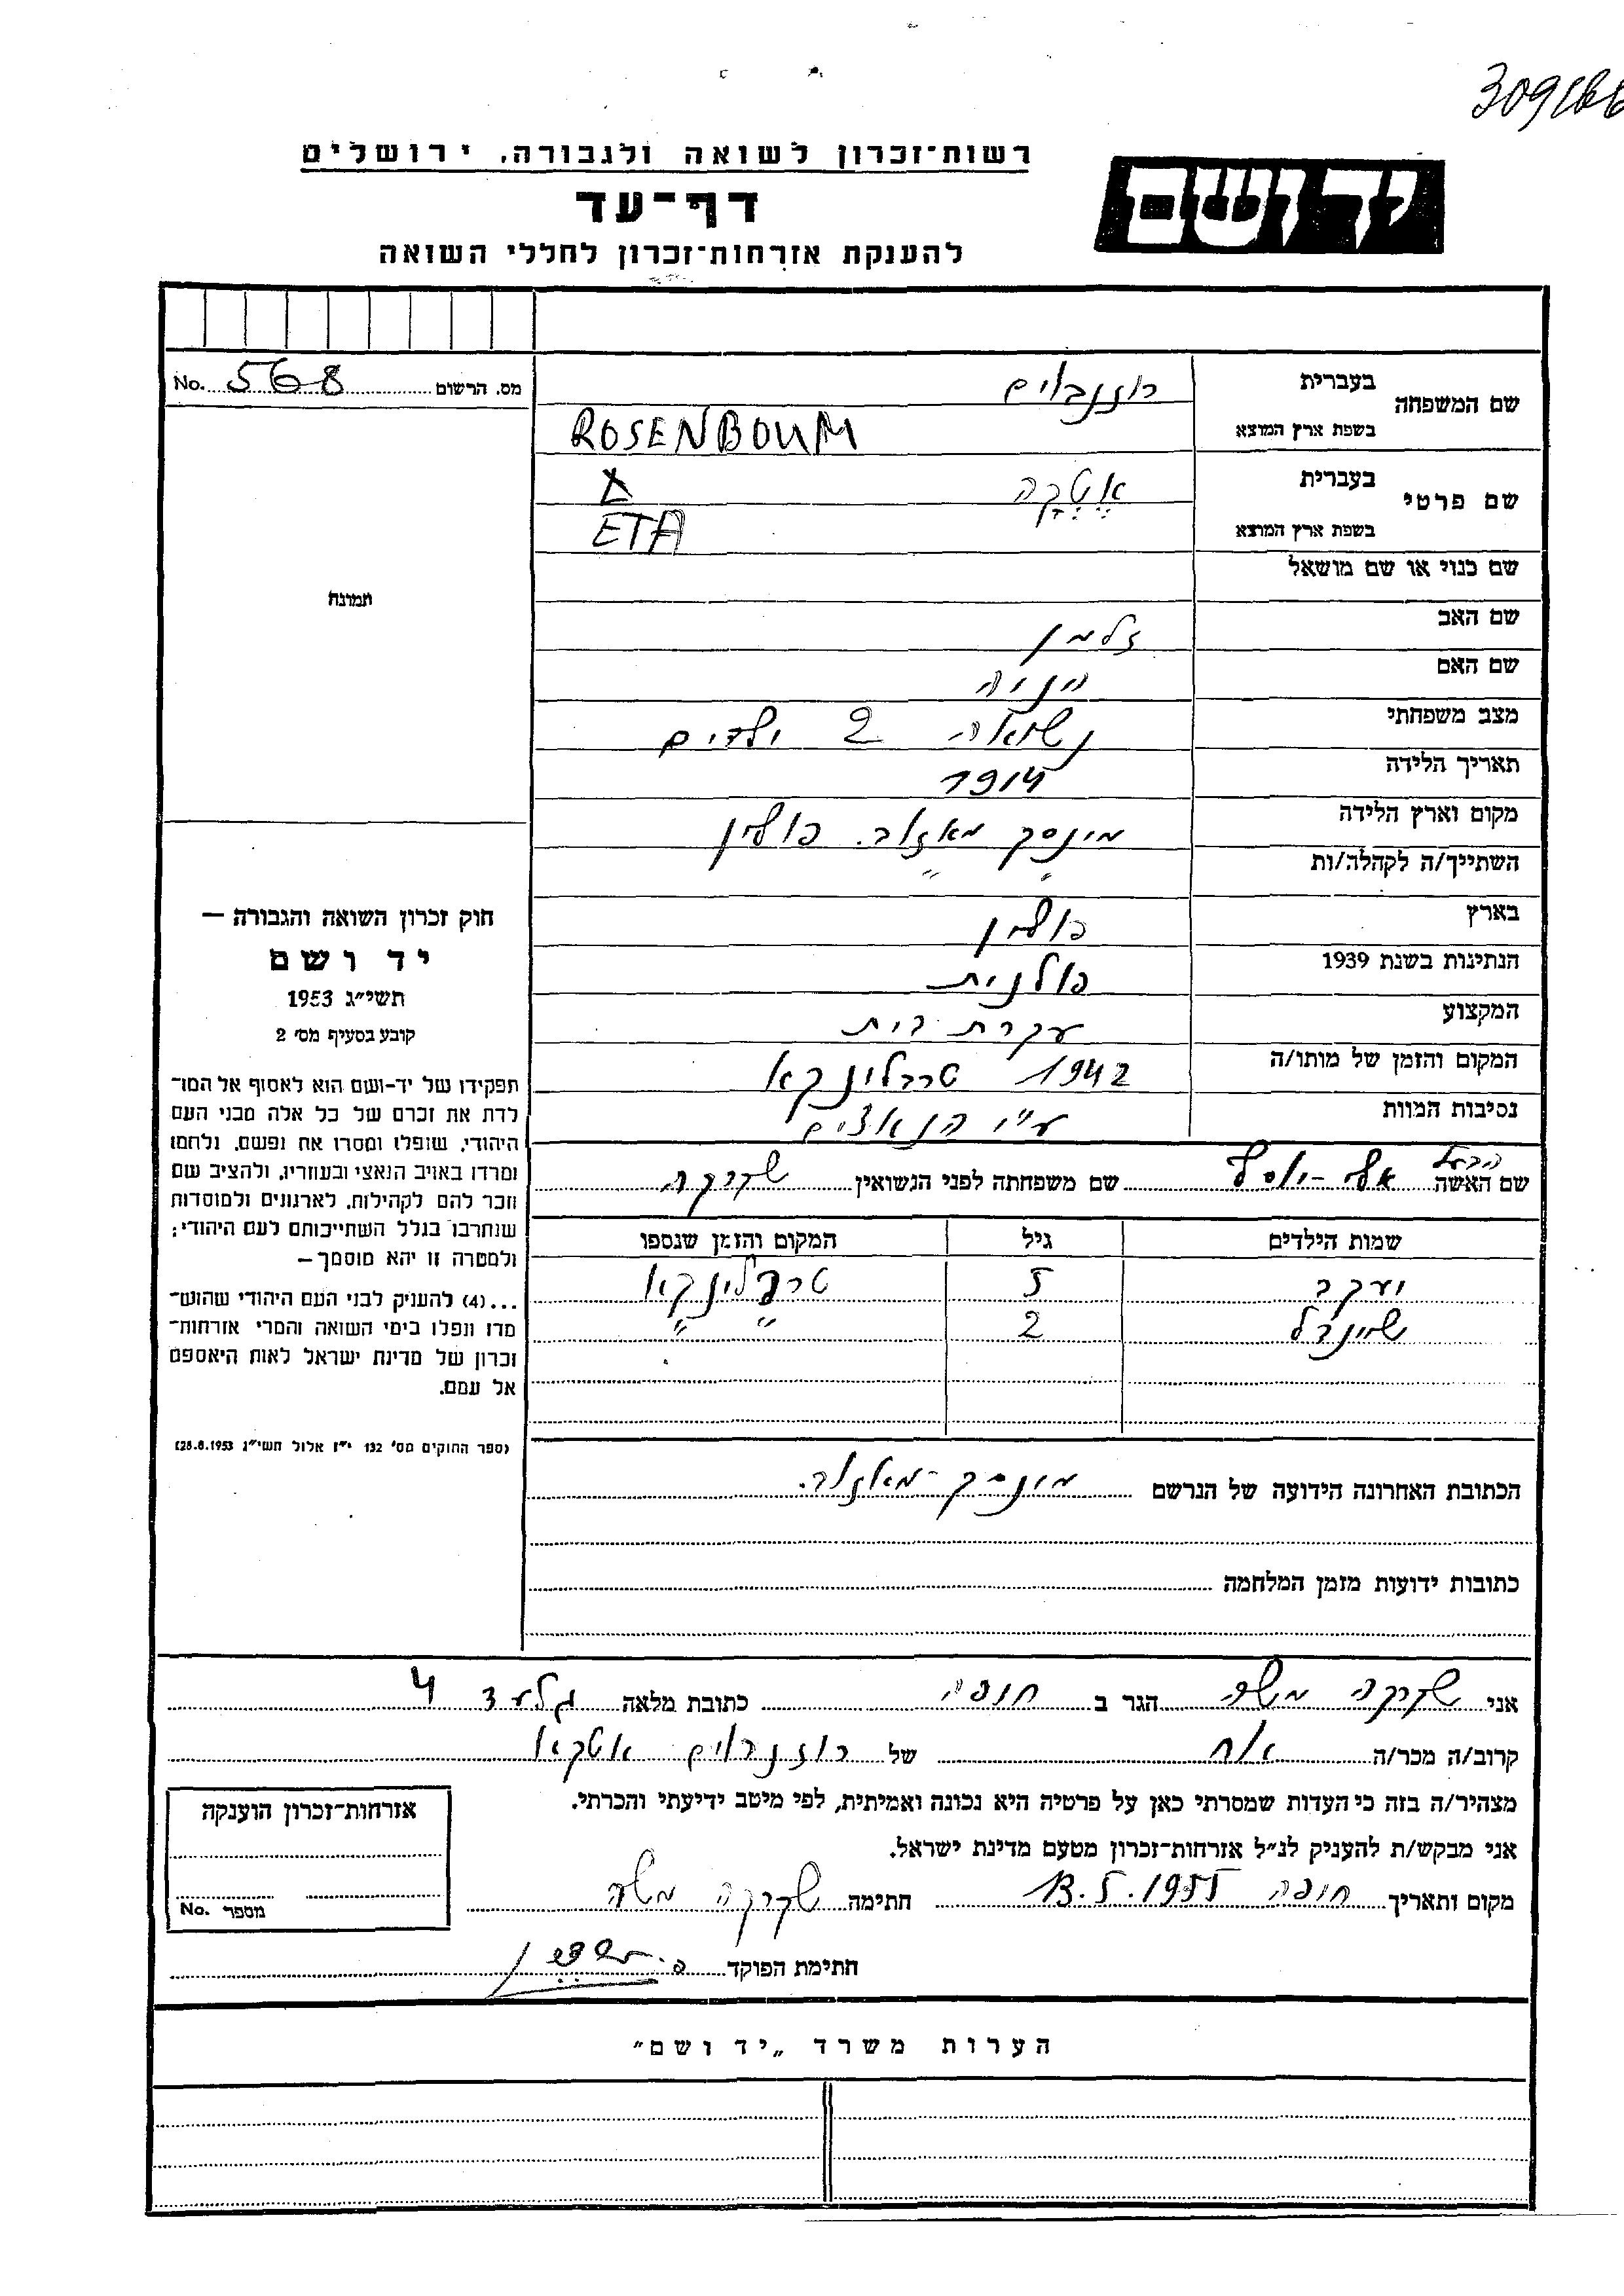 309166
רשות־זכרון לשואה ולגבורה, ירושלים
יד ושם
דף־עד
להענקת אזרחות־זכרון לחללי השואה
מס. הרשום 568 No.
תמונה
חוק זכרון השואה והגבורה —
יד ושם
תשי״ג 1953
קובע בסעיף מס׳ 2
תפקידו של יד-ושם הוא לאסוף אל המו־
לדת את זכרם של כל אלה מבני העם
היהודי, שנפלו ומסרו את נפשם, נלחמו
ומרדו באויב הנאצי ובעוזריו, ולהציב שם
וזכר להם לקהילות, לארגונים ולמוסדות
שנחרבו בגלל השתייכותם לעם היהודי;
ולמטרה זו יהא מוסמך—
...(4) להעניק לבני העם היהודי שהוש־
מדו ונפלו בימי השואה והמרי אזרחות־
זכרון של מדינת ישראל לאות היאספם
אל עמם.
(ספר החוקים מס׳ 132 י״ז אלול תשי״ג 28.8.1953)
שם המשפחה בעברית רוזנבוים
בשפת ארץ המוצא ROSENBOUM
שם פרטי בעברית אטקה X
בשפת ארץ המוצא ETA
שם כנוי או שם מושאל
שם האב זלמן
שם האם
מצב משפחתי נשואה 2 ילדים
תאריך הלידה 1914
מקום וארץ הלידה מינסק מאזוב. פולין
השתייך/ה לקהלה/ות " "
בארץ פולין
הנתינות בשנת 1939 פולנית
המקצוע עקרת בית
המקום והזמן של מותו/ה 1942 טרבלינקא
נסיבות המוות ע״י הנאצים
הבעל
שם האשה אלי-יוסף שם משפחתה לפני הנשואין שקרקה
שמות הילדים גיל המקום והזמן שנספו
יעקב 5 טרבלינקא
שיינדל 2 " "
הכתובת האחרונה הידועה של הנרשם מינסק-מאזוב.
כתובות ידועות מזמן המלחמה
אני שקרקה משה הגר ב חיפה כתובת מלאה גלעד 4
קרוב/ה מכר/ה אח של רוזנבוים אטקא
מצהיר/ה בזה כי העדות שמסרתי כאן על פרטיה היא נכונה ואמיתית, לפי מיטב ידיעתי והכרתי.
אני מבקש/ת להעניק לנ״ל אזרחות־זכרון מטעם מדינת ישראל.
מקום ותאריך חיפה 13.5.1955 חתימה שקרקה משה
חתימת הפוקד
אזרחות־זכרון הוענקה
מספר No.
הערות משרד „יד ושם״